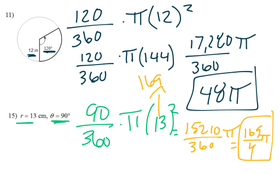 11)
12 in
120°
120/360 · π(12)²
120/360 · π(144)
17,280π/360
48π
169
15) r = 13 cm, θ = 90°
90/360 · π(13)² = 15210π/360 = 169π/4